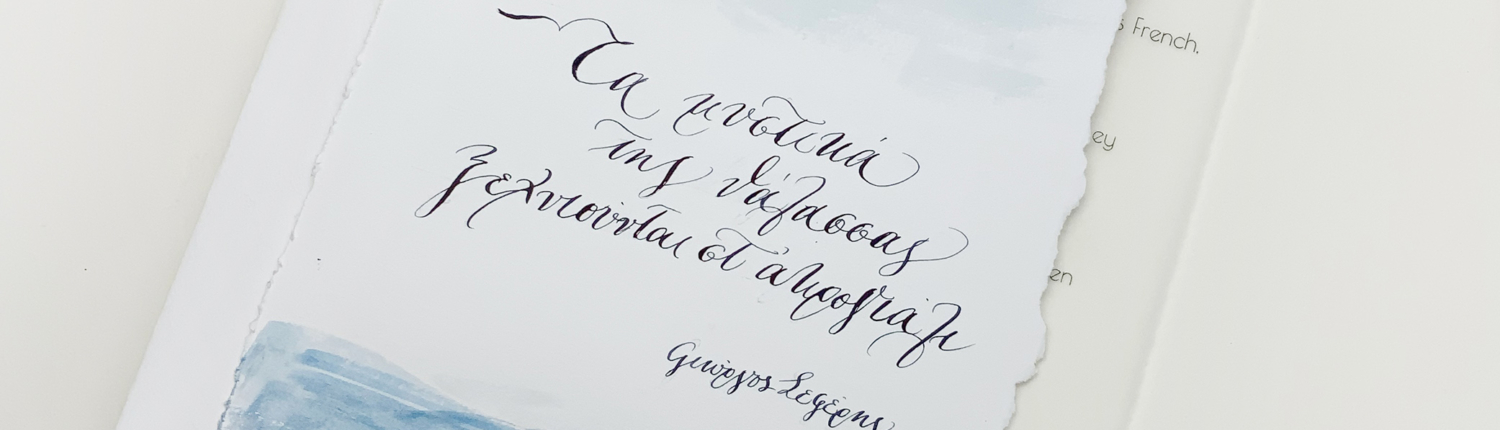 Τα μυστικά
της θάλασσας
ξεχνιούνται στ' ακρογιάλι
Γιώργος Σεφέρης
French.
ey
en